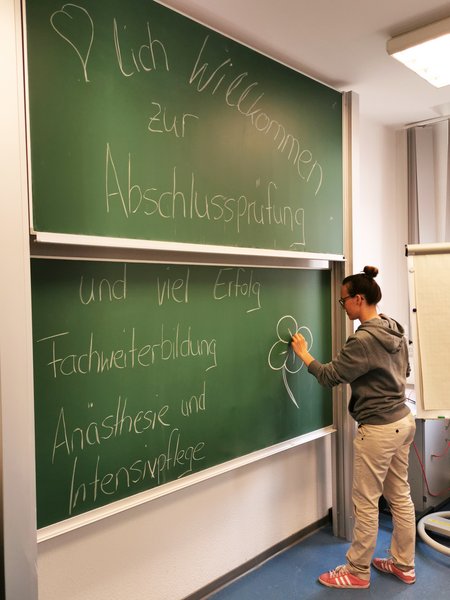 ♡lich Willkommen
zur
Abschlussprüfung
und viel Erfolg
Fachweiterbildung
Anästhesie und
Intensivpflege